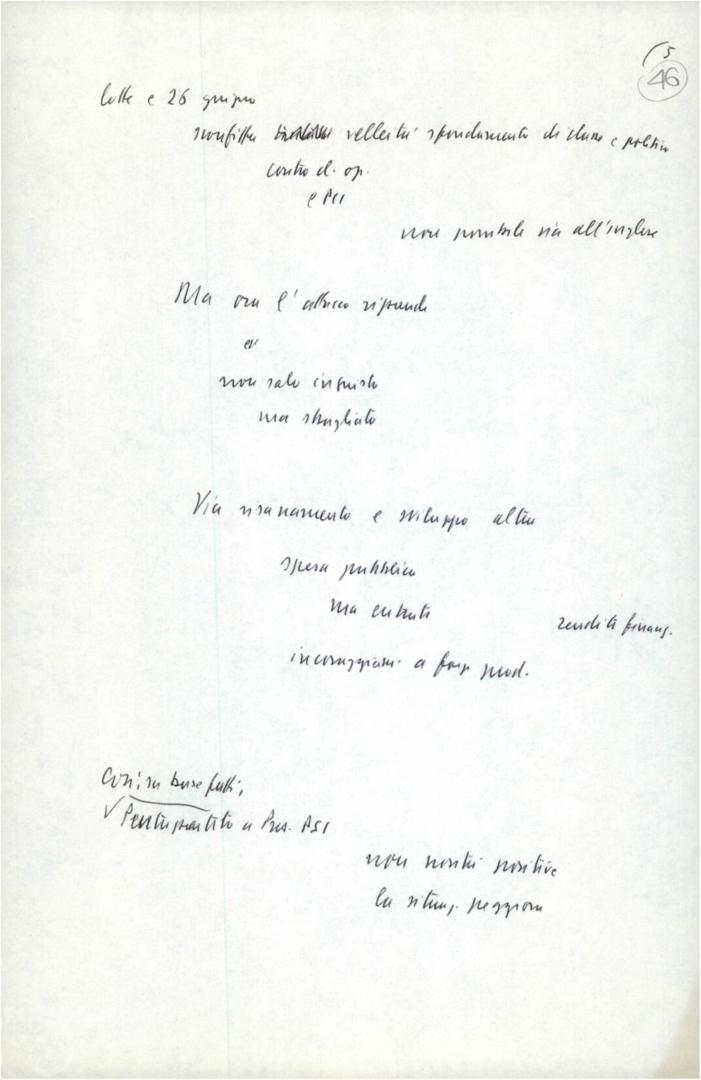 5
46
Lotte e 26 giugno
sconfitta velleità sfondamento di classe e politico
contro cl. op.
e PCI
non possibile via all'inglese
Ma ora l'attacco riprende
e'
non solo ingiusto
ma sbagliato
Via risanamento e sviluppo altra
spesa pubblica
ma entrate
rendite finanz.
incoraggiam. a forze prod.
Così, su base fatti,
Pentapartito a Pres. PSI
non novità positive
la situaz. peggiora